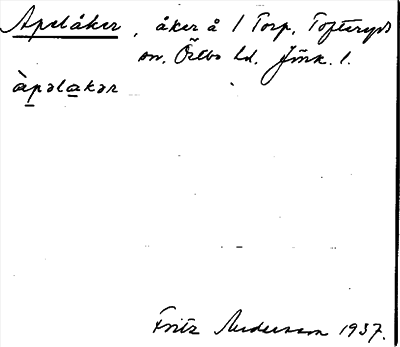 Apelåker, åker å 1 Torp, Tofteryds
sn. Östbo hd. Jönk. l.
àpəlakər
Fritz Andersson 1937.